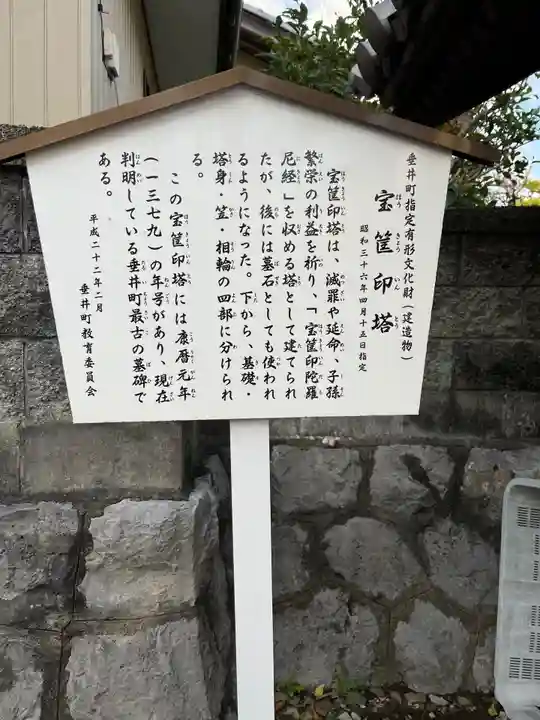 垂井町指定有形文化財(建造物)
宝篋印塔
ほうきょういんとう
昭和三十六年四月十五日指定
宝篋印塔は、滅罪や延命、子孫
繁栄の利益を祈り、「宝篋印陀羅
尼経」を収める塔として建てられ
たが、後には墓石としても使われ
るようになった。下から、基礎・
塔身・笠・相輪の四部に分けられ
る。
この宝篋印塔には康暦元年
(一三七九)の年号があり、現在
判明している垂井町最古の墓碑で
ある。
平成二十二年二月
垂井町教育委員会